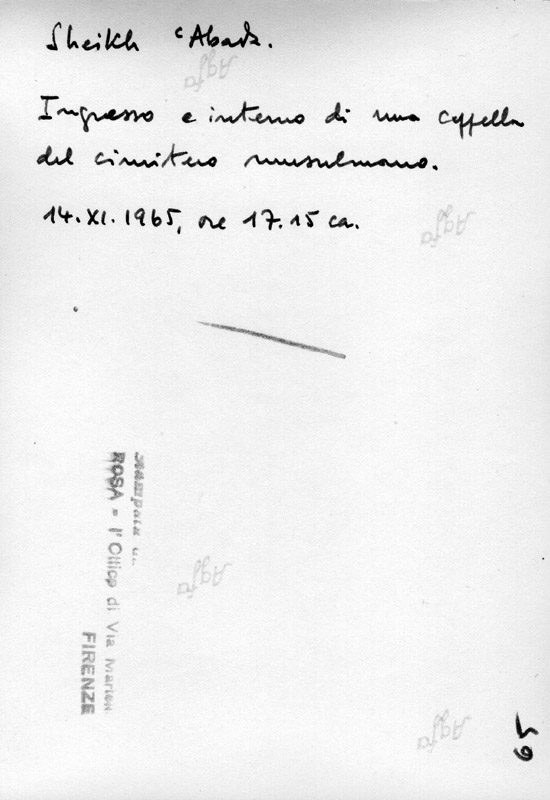 Sheikh ʿAbada.
Ingresso e interno di una cappella
del cimitero musulmano.
14.XI.1965, ore 17.15 ca.
Agfa
Agfa
Agfa
Agfa
ROSA = l'Ottico di Via
FIRENZE
59